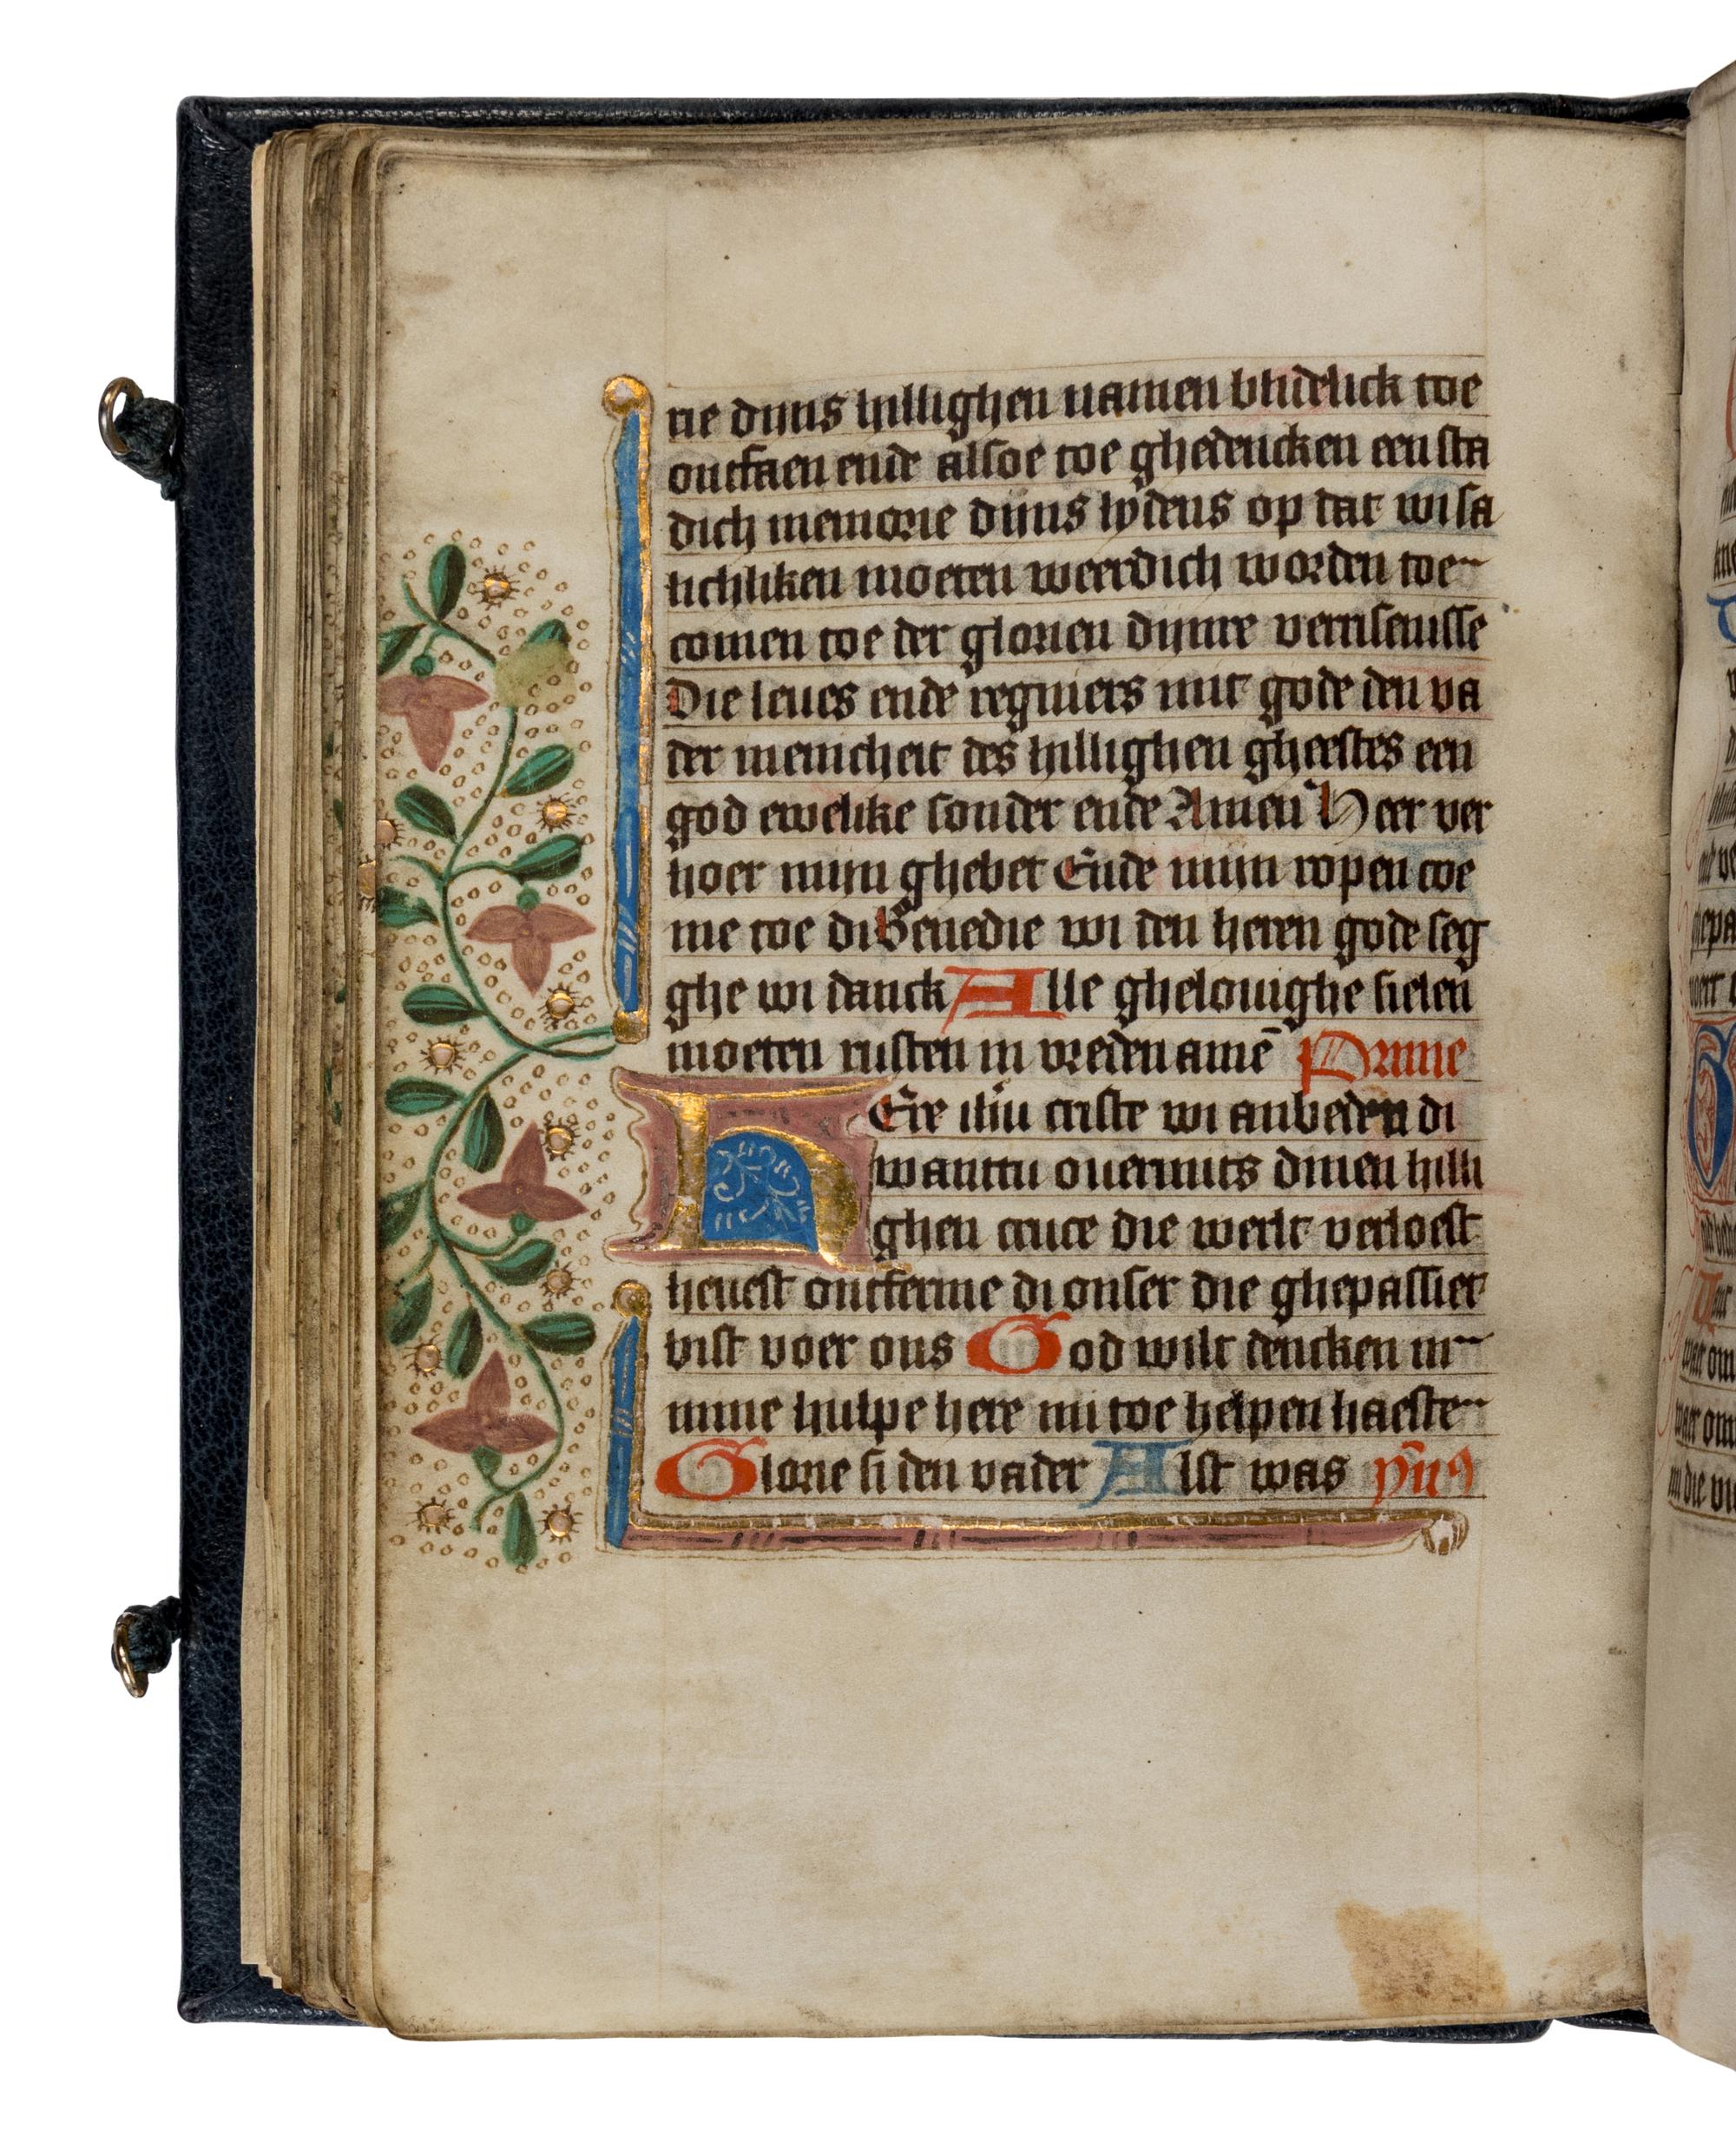 rie dijns hillighen namen blidelick toe
ontfaen ende alsoe toe ghedencken een sta
dich memorie dijns lydens op dat wi sa
lichliken moeten weerdich worden toe
comen toe der glorien dijnre verrisenisse
Die leues ende regniers mit gode den va
der in enicheit des hillighen gheestes een
god ewelike sonder ende Amen Heer ver
hoer mijn ghebet Ende mijn ropen coe
me toe di Benedie wi den heren gode seg
ghe wi danck Alle ghelouighe sielen
moeten rusten in vreden amē Prime
HEre ihu criste wi anbeden di
wanttu ouermits dinen hilli
ghen cruce die werlt verloest
heuest ontferme di onser die ghepassiet
bist voer ons God wilt dencken in
mine hulpe here mi toe helpen haeste
Glorie si den vader Alst was ymꝰ